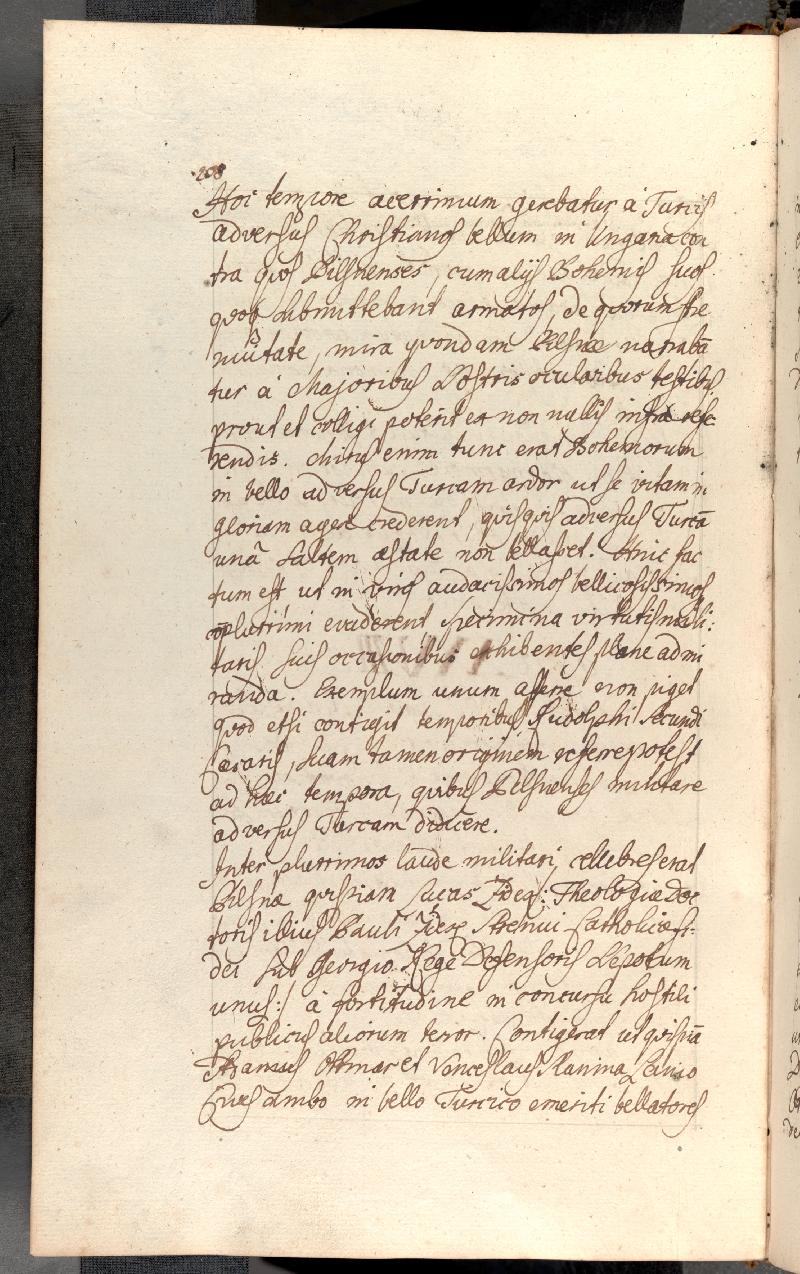 208
Hoc tempore acerrimum gerebatur à Turcis
adversus Christianos bellum in Ungaria con
tra quos Pilsnenses, cum alijs Bohemis suos
quoq submittebant armatos, de quorum stre
nuitate, mira quondam Pilsnæ narrabā
tur à Majoribus Nostris ocularibus testibus
prout et colligi poterit ex non nullis infra refe
rendis. Mirus enim tunc erat Bohemorum
in bello adversus Turcam ardor ut se vitam in
gloriam agere crederent, quisquis adversus Turcā
unâ saltem æstate non bellasset. Hinc fac
tum est ut in viros audacissimos bellicosissimos
plurimi evaderent specimina virtutis mili:
taris suis occasionibus exhibentes plane admi
randa. Exemplum unum afferre non piget
quod etsi contigit temporibus Rudolphi Secundi
Cæsaris, suam tamen originem referre potest
ad hæc tempora, quibus Pilsnenses militare
adversus Turcam didicere.
Inter plurimos laude militari celebres erat
Pilsnæ quispiam Lucas : Theologiæ Doc
toris illius Pauli Strenui Catholicæ fi-
dei sub Georgio Rege Defensoris Nepotum
unus:/ à fortitudine in concursu hostili
publicus aliorum terror. Contigerat ut quispiā
Ottmar et Venceslaus Lanio
Cives ambo in bello Turcico emeriti bellatores